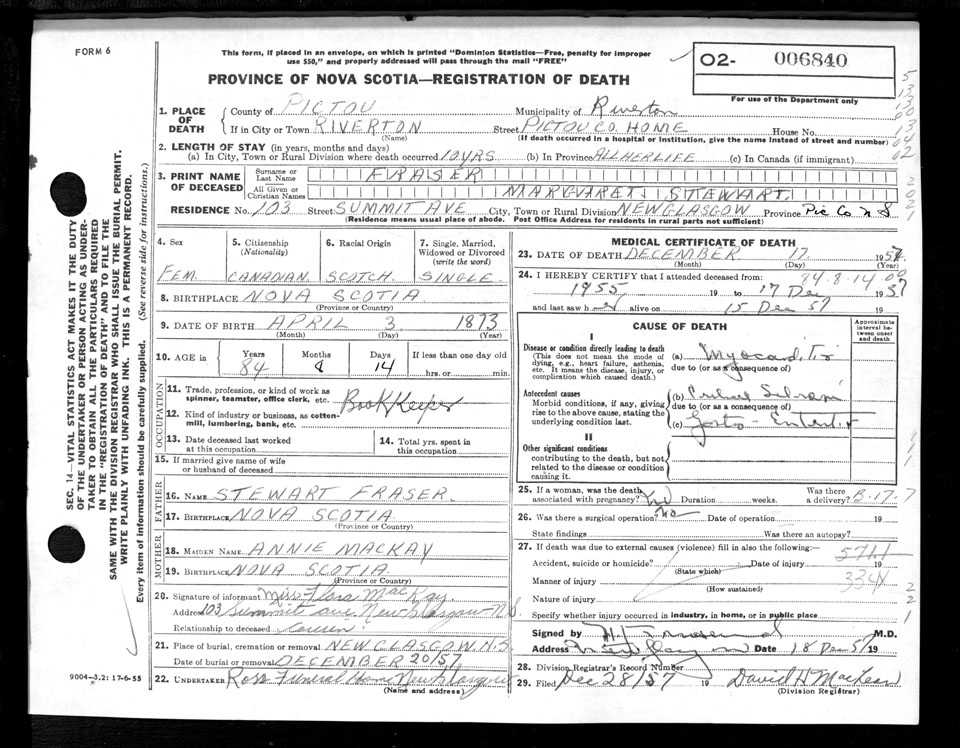 FORM 6
This form, if placed in an envelope, on which is printed "Dominion Statistics—Free, penalty for improper
use $50," and properly addressed will pass through the mail "FREE"
O2- 006840
For use of the Department only
PROVINCE OF NOVA SCOTIA—REGISTRATION OF DEATH
1. PLACE OF DEATH
County of PICTOU Municipality of Riverton
If in City or Town RIVERTON Street PICTOU CO. HOME House No.
(Name) (If death occurred in a hospital or institution, give the name instead of street and number)
2. LENGTH OF STAY (in years, months and days)
(a) In City, Town or Rural Division where death occurred 10 YRS (b) In Province ALL HER LIFE (c) In Canada (if immigrant)
3. PRINT NAME OF DECEASED
Surname or Last Name FRASER
All Given or Christian Names MARGARET STEWART
RESIDENCE No. 103 Street SUMMIT AVE City, Town or Rural Division NEW GLASGOW Province Pic Co N S
(Residence means usual place of abode. Post Office Address for residents in rural parts not sufficient)
4. Sex
FEM.
5. Citizenship
(Nationality)
CANADIAN
6. Racial Origin
SCOTCH
7. Single, Married,
Widowed or Divorced
(write the word)
SINGLE
8. BIRTHPLACE NOVA SCOTIA
(Province or Country)
9. DATE OF BIRTH APRIL 3 1873
(Month) (Day) (Year)
10. AGE in Years Months Days If less than one day old
84 8 14 hrs. or min.
OCCUPATION
11. Trade, profession, or kind of work as
spinner, teamster, office clerk, etc. Book Keeper
12. Kind of industry or business, as cotton-
mill, lumbering, bank, etc.
13. Date deceased last worked
at this occupation
14. Total yrs. spent in
this occupation
15. If married give name of wife
or husband of deceased
FATHER
16. NAME STEWART FRASER.
17. BIRTHPLACE NOVA SCOTIA
(Province or Country)
MOTHER
18. MAIDEN NAME ANNIE MACKAY
19. BIRTHPLACE NOVA SCOTIA
(Province or Country)
20. Signature of informant Miss Flora MacKay
Address 103 Summit ave. New Glasgow N.S.
Relationship to deceased Cousin
21. Place of burial, cremation or removal NEW GLASGOW. N.S
Date of burial or removal DECEMBER 20/57
22. UNDERTAKER Ross Funeral Home New Glasgow
(Name and address)
MEDICAL CERTIFICATE OF DEATH
23. DATE OF DEATH DECEMBER 17. 1957
(Month) (Day) (Year)
84.8.14 00
24. I HEREBY CERTIFY that I attended deceased from:
1955 19 to 17 Dec 1957
and last saw h alive on 15 Dec 57 19
CAUSE OF DEATH
Approximate interval between onset and death
I
Disease or condition directly leading to death
(This does not mean the mode of
dying, e.g., heart failure, asthenia,
etc. It means the disease, injury, or
complication which caused death.)
(a) Myocarditis
due to (or as a consequence of)
Antecedent causes
Morbid conditions, if any, giving
rise to the above cause, stating the
underlying condition last.
(b)
due to (or as a consequence of)
(c) Gastro-Enteritis
II
Other significant conditions
contributing to the death, but not
related to the disease or condition
causing it.
25. If a woman, was the death
associated with pregnancy? Duration weeks. Was there
a delivery? B-17-7
26. Was there a surgical operation? no Date of operation 19
State findings Was there an autopsy?
27. If death was due to external causes (violence) fill in also the following:—
5711
Accident, suicide or homicide? Date of injury 19
(State which)
334X
Manner of injury
(How sustained)
Nature of injury
Specify whether injury occurred in industry, in home, or in public place
Signed by M.D.
Address Date 18 Dec 57 19
28. Division Registrar's Record Number
29. Filed Dec 28/57 19 David H MacLean
(Division Registrar)
SEC. 14—VITAL STATISTICS ACT MAKES IT THE DUTY
OF THE UNDERTAKER OR PERSON ACTING AS UNDER-
TAKER TO OBTAIN ALL THE PARTICULARS REQUIRED
IN THE "REGISTRATION OF DEATH" AND TO FILE THE
SAME WITH THE DIVISION REGISTRAR WHO SHALL ISSUE THE BURIAL PERMIT.
WRITE PLAINLY WITH UNFADING INK. THIS IS A PERMANENT RECORD.
Every item of information should be carefully supplied. (See reverse side for instructions.)
9004-3.2: 17-6-55